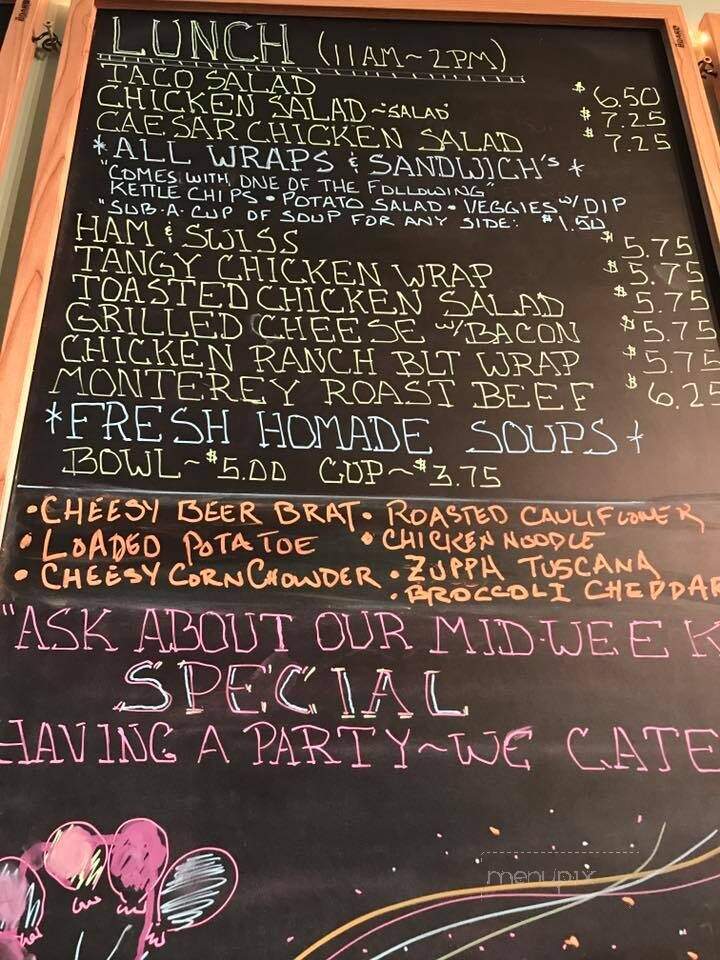 LUNCH (11AM~2PM)
TACO SALAD $6.50
CHICKEN SALAD ~SALAD $7.25
CAESAR CHICKEN SALAD $7.25
*ALL WRAPS & SANDWICH's *
"COMES WITH ONE OF THE FOLLOWING"
KETTLE CHIPS • POTATO SALAD • VEGGIES w/ DIP
"SUB A CUP OF SOUP FOR ANY SIDE: $1.50
HAM & SWISS $5.75
TANGY CHICKEN WRAP $5.75
TOASTED CHICKEN SALAD $5.75
GRILLED CHEESE w/BACON $5.75
CHICKEN RANCH BLT WRAP $5.75
MONTEREY ROAST BEEF $6.25
*FRESH HOMADE SOUPS*
BOWL~$5.00 CUP~$3.75
•CHEESY BEER BRAT • ROASTED CAULIFLOWER
•LOADED POTATOE • CHICKEN NOODLE
•CHEESY CORN CHOWDER • ZUPPA TUSCANA
•BROCCOLI CHEDDAR
"ASK ABOUT OUR MID-WEEK
SPECIAL
HAVING A PARTY~WE CATE
menupix